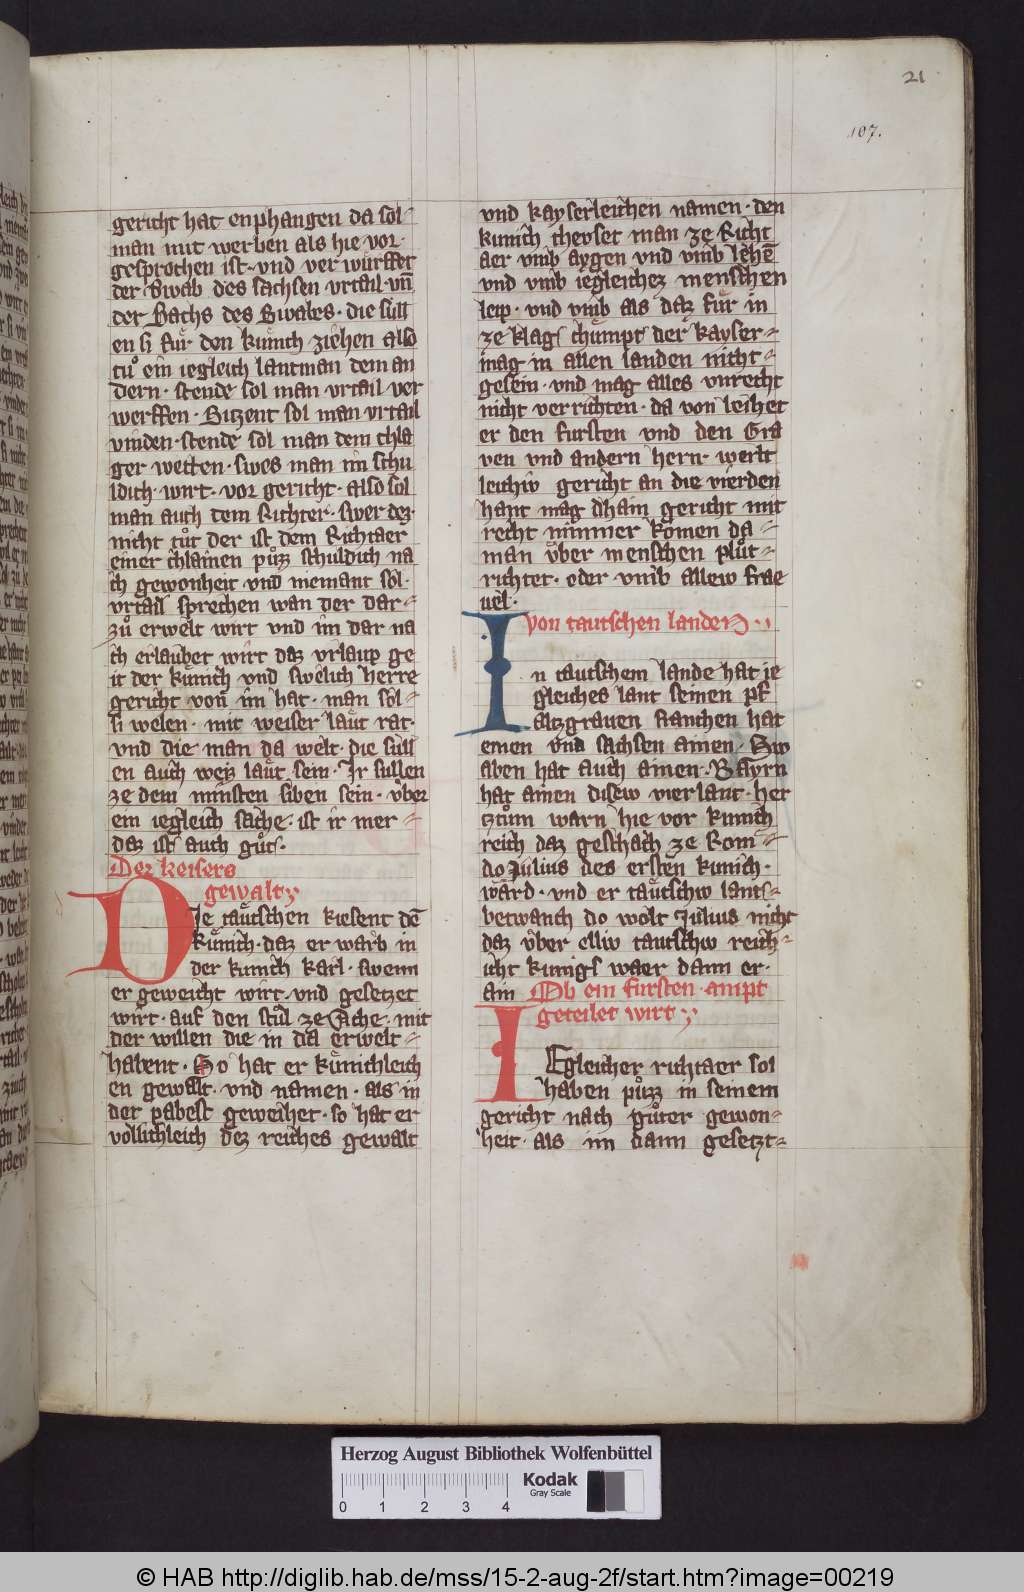 21
107.
gericht hat enphangen da sol-
man mit werben als hie vor·
gesprochen ist· vnd ver wurffet
der Swab des sachsen vrtail vn̄
der Sachs des Swabes· die sull
en si fuͤr den kuͤnich ziehen also
tuͦ ein iegleich lantman dem an
dern· stende sol man vrtail ver
werffen· Sitzent sol man vrtail
vinden· stende sol man dem chla
ger wetten· swes man im schu
ldich· wirt· vor gericht· also sol
man auch dem Richter· swer dez·
nicht tuͦt der ist dem Richtaer
einer chlainen puͦzz schuldich na
ch gewonheit vnd niemant sol·
vrtail sprechen wan der dar-
zuͦ erwelt wirt vnd im dar na
ch erlaubet wirt daz vrlaup ge
it der kuͤnich vnd swelich herre
gericht von im hat· man sol-
si welen· mit weiser laͤut rat·
vnd die man da welt· die sull
en auch weis laͤut sein· Ir sullen
ze dem minsten siben sein· vber
ein iegleich sache· ist ir mer-
daz ist auch guͦt·
Dez keisers
gewalt
DIe taͤutschen kiesent dē
kuͤnich· daz er warb in
der kunich karl· swenn
er geweicht wirt· vnd gesetzet
wirt· auf den stuͦl ze Ache· mit
der willen die in da erwelt-
habent· So hat er kuͤnichleich
en gewalt· vnd namen· als in
der pabest geweihet· so hat er
vollichleich dez reiches gewalt
vnd kayserleichen namen· den
kunich cheuset man ze Richt
aer vmb aygen vnd vmb lehē
vnd vmb iegleichez menschen
leip· vnd vmb als daz fuͤr in
ze klag chuͤmpt der kayser-
mag in allen landen nicht-
gesein· vnd mag alles vnrecht
nicht verrichten· da von leihet
er den fursten vnd den Gra
ven vnd andern hern· werlt
leichiv gericht an die vierden
hant mag dhain gericht mit
recht nimmer komen da-
man vber menschen pluͦt-
richtet· oder vmb allew frae
uel·
von tautschen landen
In tautschem lande hat ie
gleiches lant seinen pf
altzgrauen franchen hat
einen vnd sachsen ainen· Sw
aben hat auch ainen· Bayrn
hat ainen disew vier lant· her
tztuͦm warn hie vor kunich
reich daz geschach ze Rom-
do Julius des ersten kunich·
ward· vnd er taͤutschw lant-
betwanch do wolt Julius nicht
daz vber elliv tautschw reich-
icht kunigs waer dann er·
ain Ob ein fursten· ampt
geteilet wirt
IEgleicher richtaer sol
haben puͦzz in seinem
gericht nach guͦter gewon-
heit· als im dann gesetzt-
Herzog August Bibliothek Wolfenbüttel
0 1 2 3 4
Kodak
Gray Scale
© HAB http://diglib.hab.de/mss/15-2-aug-2f/start.htm?image=00219